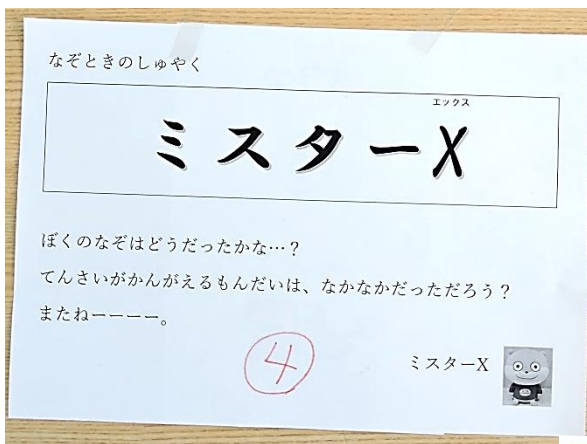 なぞときのしゅやく
エックス
ミスターX
ぼくのなぞはどうだったかな…？
てんさいがかんがえるもんだいは、なかなかだっただろう？
またねーーーー。
④
ミスターX